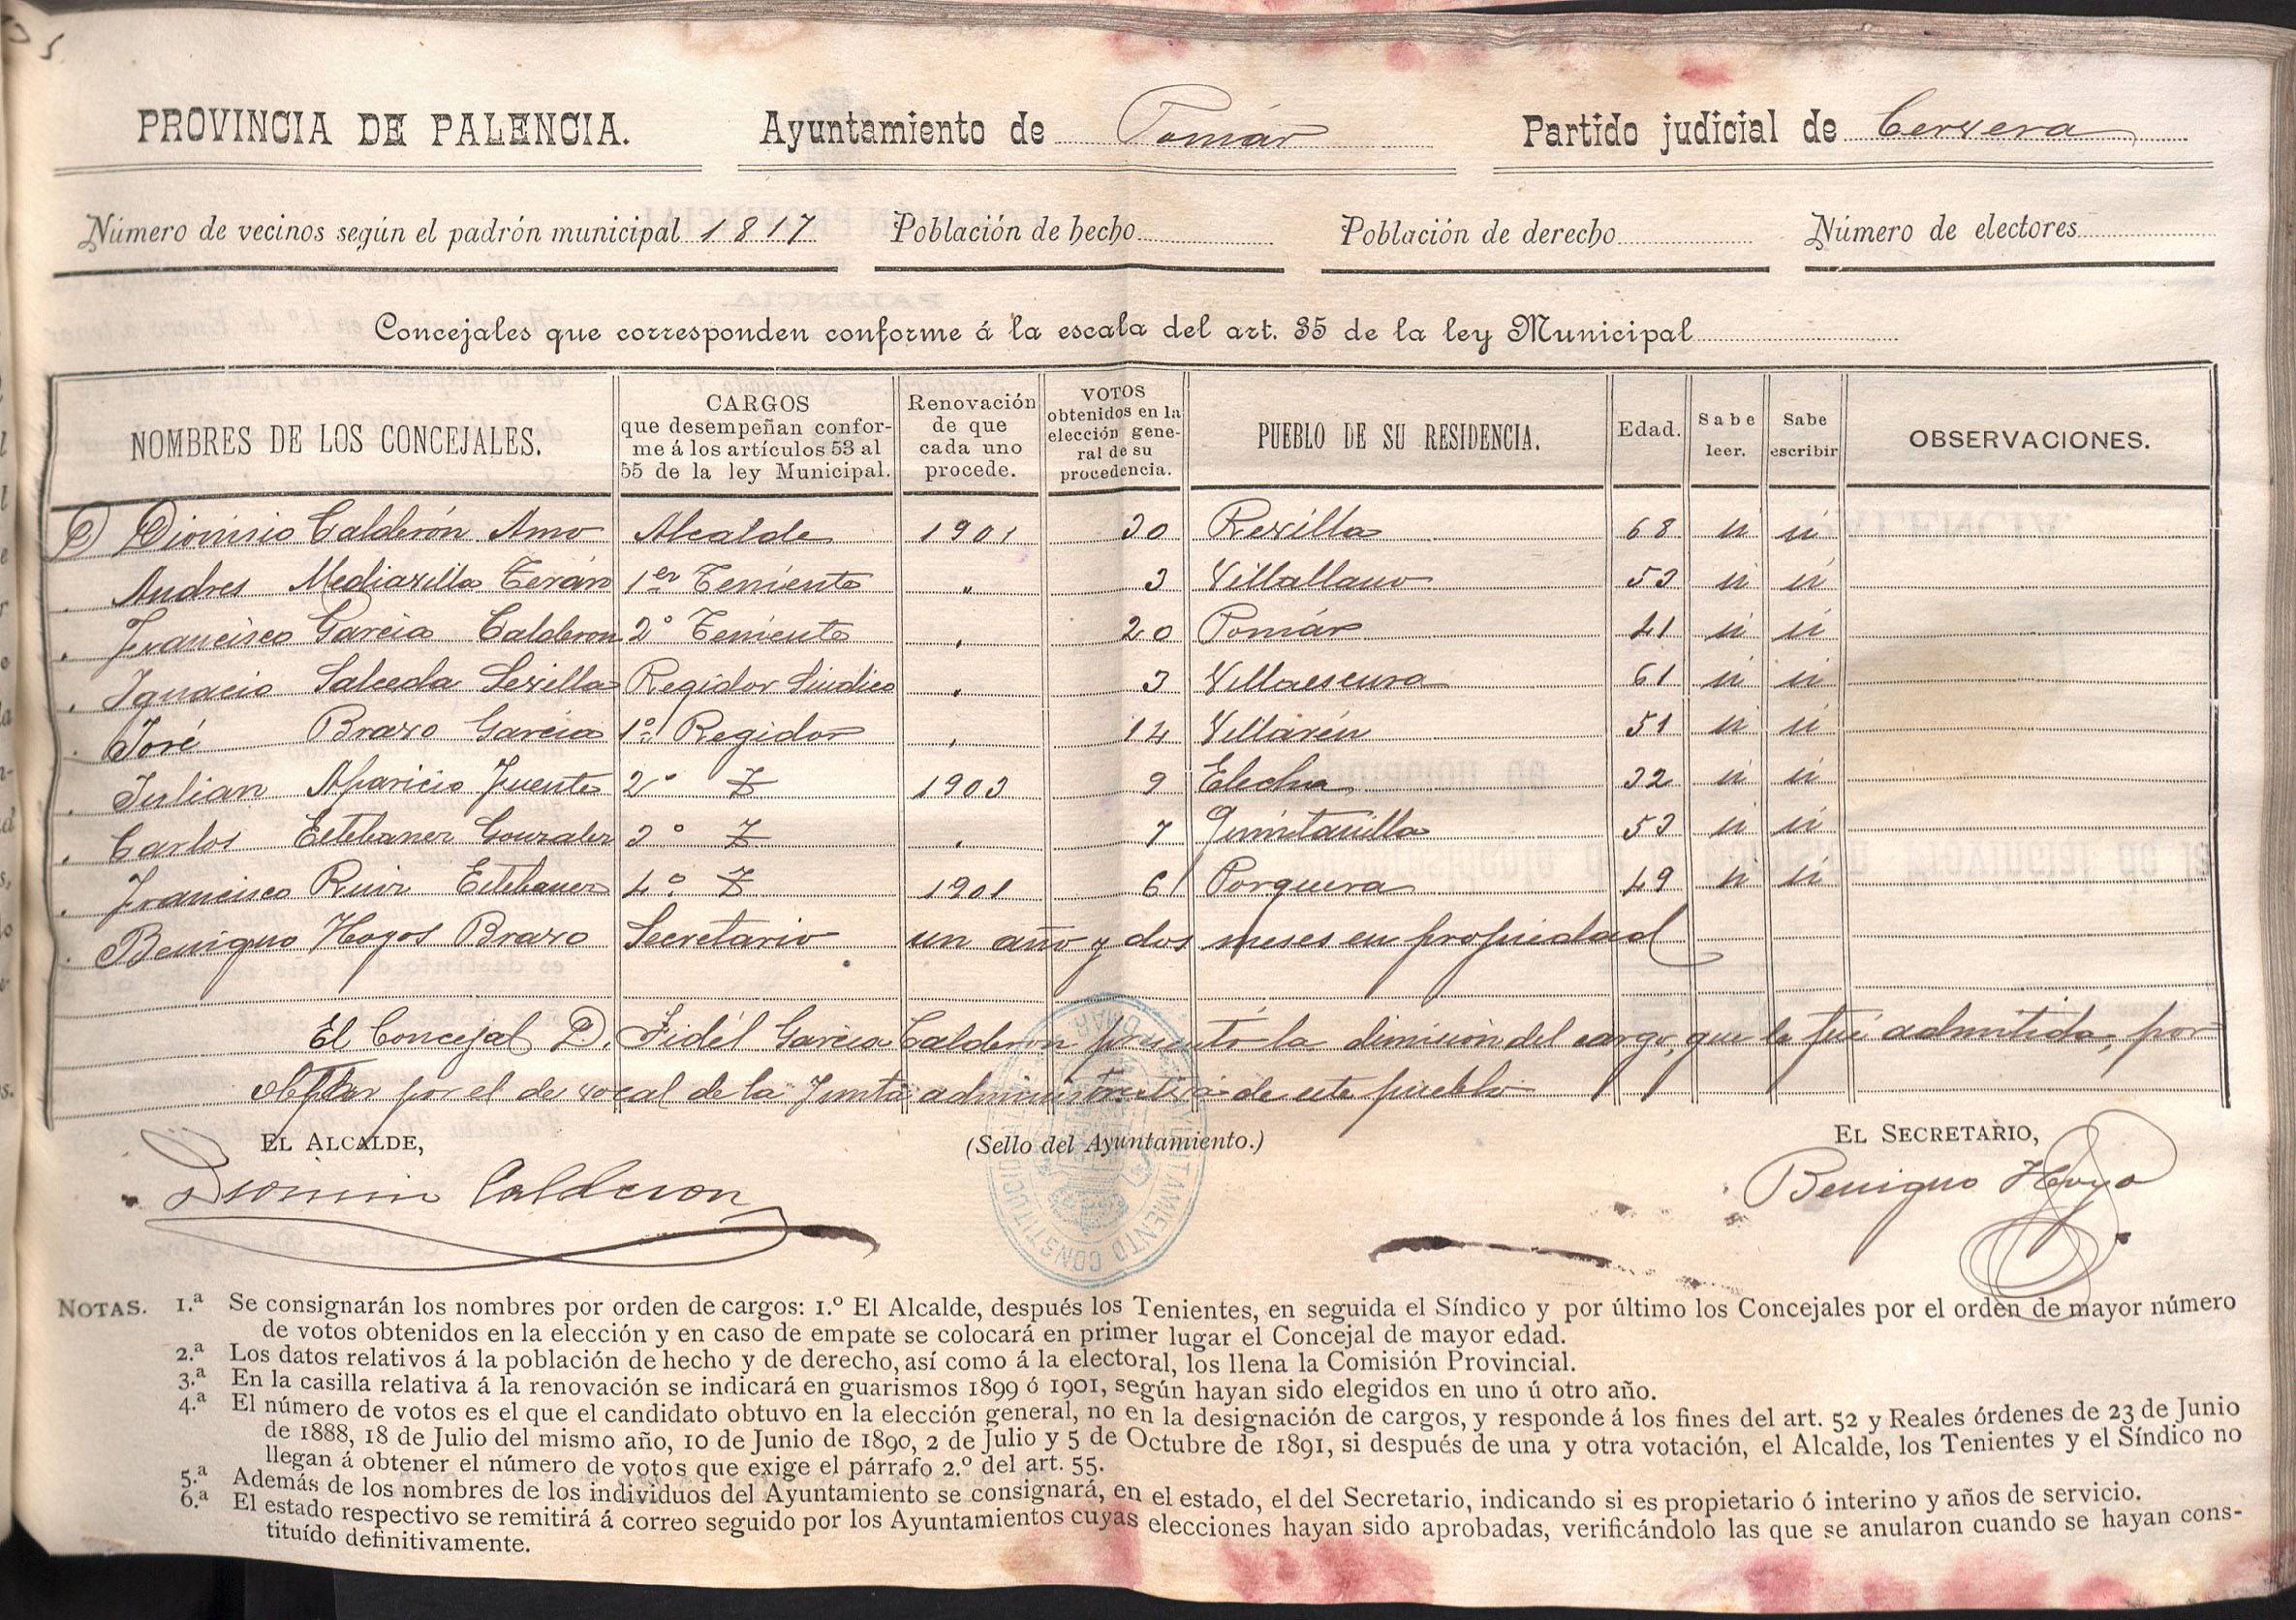 PROVINCIA DE PALENCIA. Ayuntamiento de Pomár Partido judicial de Cervera
Número de vecinos según el padrón municipal 1817 Población de hecho Población de derecho Número de electores
Concejales que corresponden conforme á la escala del art. 35 de la ley Municipal
NOMBRES DE LOS CONCEJALES. CARGOS que desempeñan conforme á los artículos 53 al 55 de la ley Municipal. Renovación de que cada uno procede. VOTOS obtenidos en la elección general de su procedencia. PUEBLO DE SU RESIDENCIA. Edad. Sabe leer. Sabe escribir OBSERVACIONES.
D. Dionisio Calderón Amo Alcalde 1901 30 Revilla 68 si si
" Andres Mediavilla Terán 1er Teniente " 3 Villallano 53 si si
" Francisco Garcia Calderon 2º Teniente " 20 Pomár 41 si si
" Ignacio Salceda Sevilla Regidor Sindico " 3 Villaescusa 61 si si
" José Bravo Garcia 1º Regidor " 14 Villarén 51 si si
" Julian Aparicio Fuente 2º 1903 9 Elecha 32 si si
" Carlos Estebanez Gonzalez 3º " 7 Quintanilla 53 si si
" Francisco Ruiz Estebanez 4º 1901 6 Porquera 49 si si
" Benigno Hoyos Bravo Secretario un año y dos meses en propiedad
El Concejal D. Fidél Garcia Calderon presentó la dimision del cargo, que le fué admitida, por
optar por el de vocal de la Junta administrativa de este pueblo
EL ALCALDE, (Sello del Ayuntamiento.) EL SECRETARIO,
Dionisio Calderon Benigno Hoyos
AYUNTAMIENTO CONSTITUCIONAL POMAR
NOTAS. 1.ª Se consignarán los nombres por orden de cargos: 1.º El Alcalde, después los Tenientes, en seguida el Síndico y por último los Concejales por el orden de mayor número
de votos obtenidos en la elección y en caso de empate se colocará en primer lugar el Concejal de mayor edad.
2.ª Los datos relativos á la población de hecho y de derecho, así como á la electoral, los llena la Comisión Provincial.
3.ª En la casilla relativa á la renovación se indicará en guarismos 1899 ó 1901, según hayan sido elegidos en uno ú otro año.
4.ª El número de votos es el que el candidato obtuvo en la elección general, no en la designación de cargos, y responde á los fines del art. 52 y Reales órdenes de 23 de Junio
de 1888, 18 de Julio del mismo año, 10 de Junio de 1890, 2 de Julio y 5 de Octubre de 1891, si después de una y otra votación, el Alcalde, los Tenientes y el Síndico no
llegan á obtener el número de votos que exige el párrafo 2.º del art. 55.
5.ª Además de los nombres de los individuos del Ayuntamiento se consignará, en el estado, el del Secretario, indicando si es propietario ó interino y años de servicio.
6.ª El estado respectivo se remitirá á correo seguido por los Ayuntamientos cuyas elecciones hayan sido aprobadas, verificándolo las que se anularon cuando se hayan cons-
tituído definitivamente.